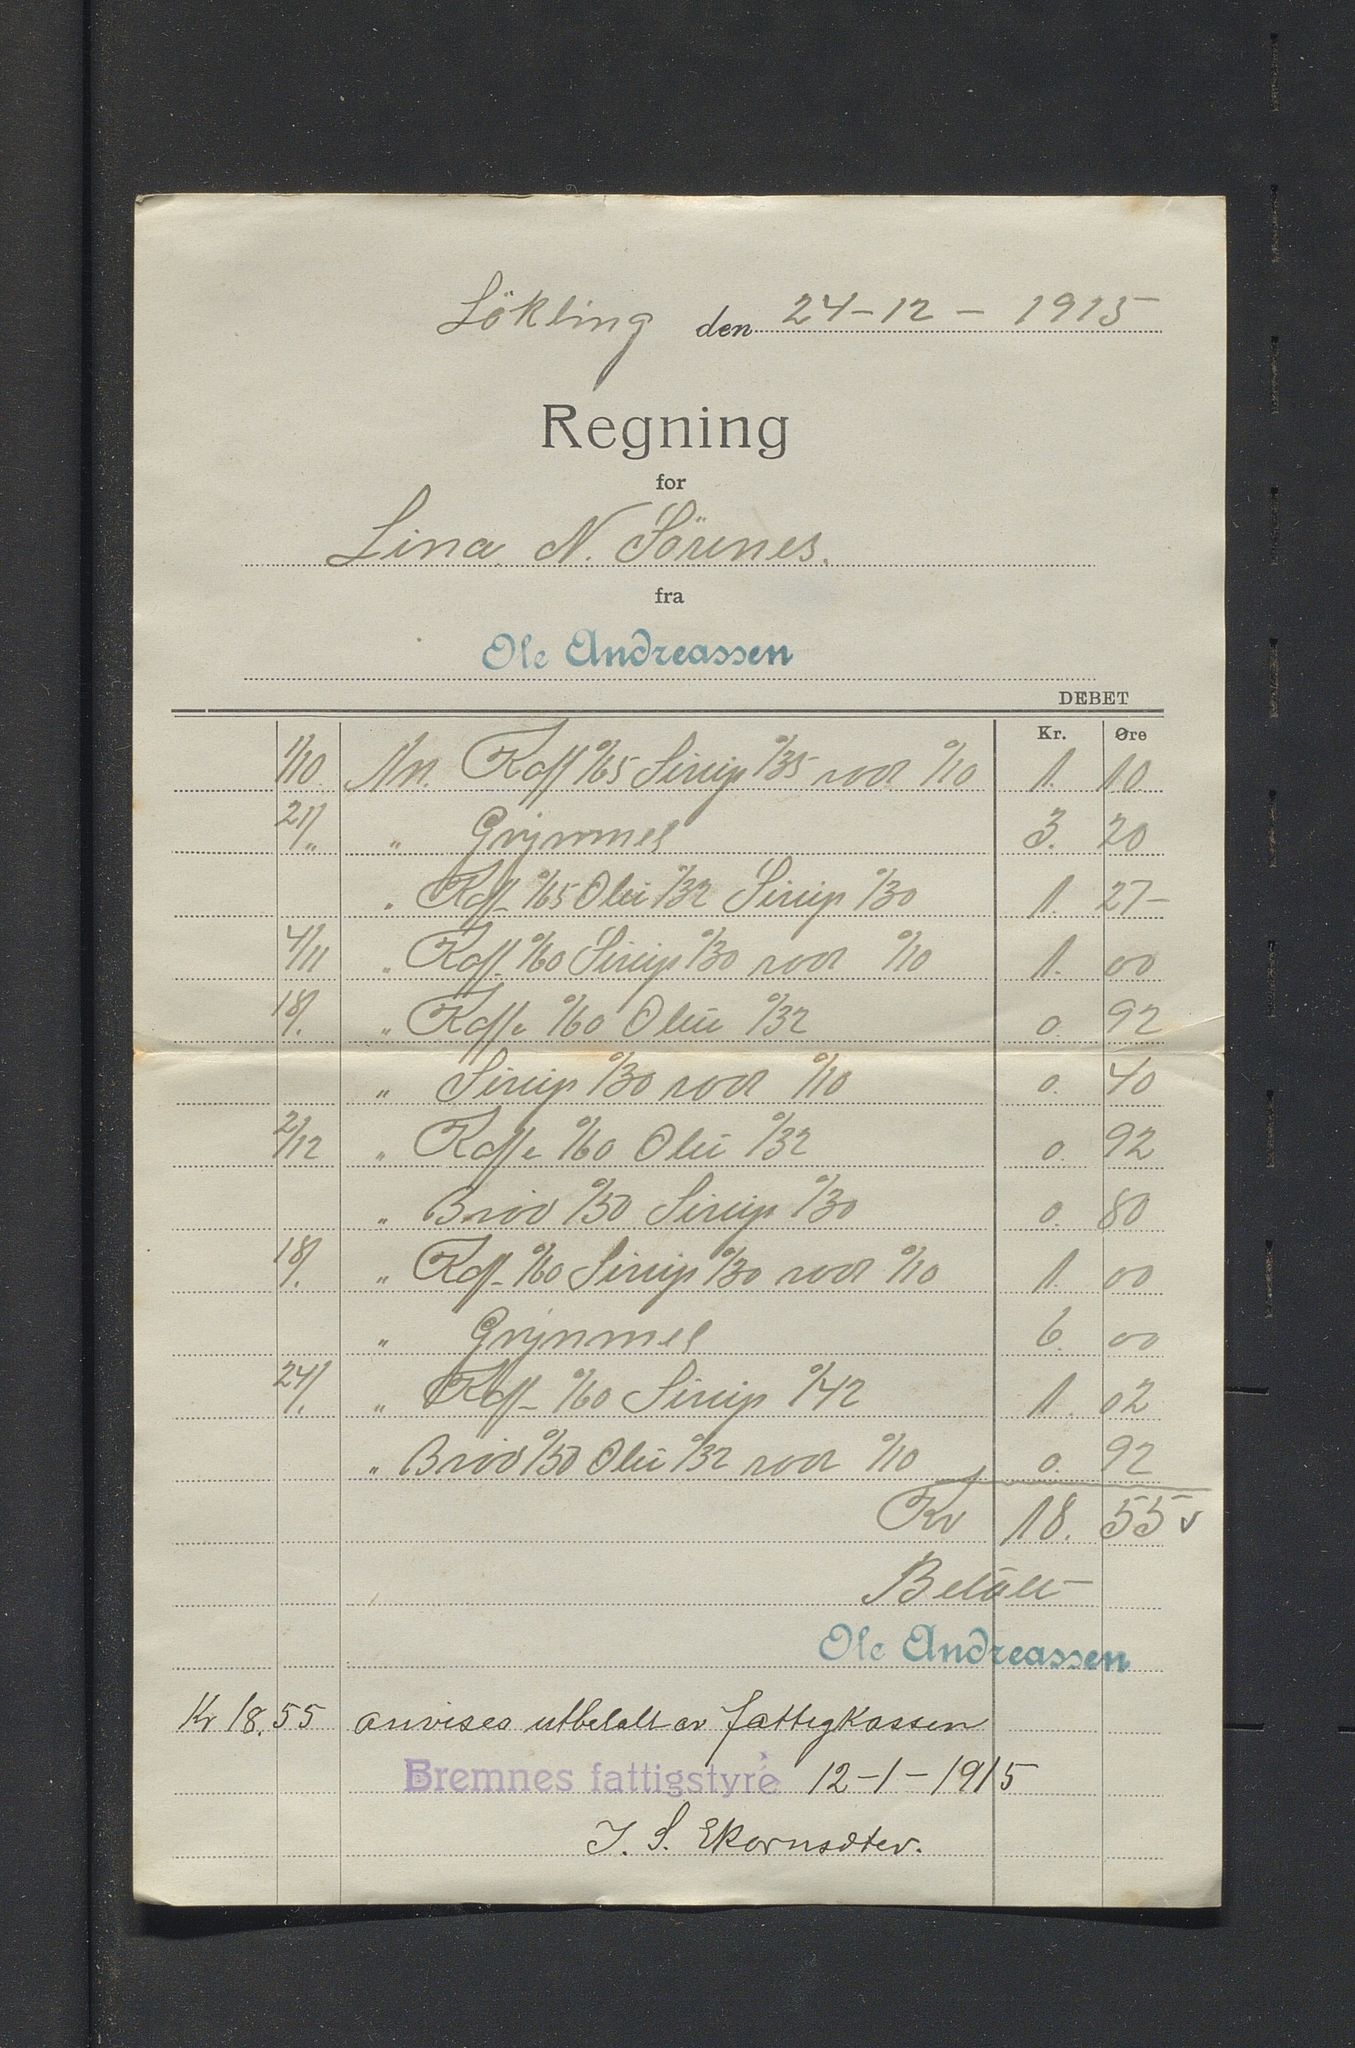 Lökling den 24-12-1915
Regning
for
Lina N. Sörenes.
fra
Ole Andreassen
DEBET
Kr. Øre
1/10 An. Kaff %65 Sirup %35 rod %10 1. 10
21/„ „ Grynmel 3. 20
„ Kaff %65 Olie %32 Sirup %30 1. 27-
4/11 „ Kaff. %60 Sirup %30 rod %10 1. 00
18/. „ Kaffe %60 Olie %32 0. 92
„ Sirup %30 rod %10 0. 40
2/12 „ Kaffe %60 Olie %32 0. 92
„ Bröd %50 Sirup %30 0. 80
18/. „ Kaff %60 Sirup %30 rod %10 1. 00
„ Grynmel 6. 00
24/. „ Kaff %60 Sirup %42 1. 02
„ Bröd %50 Olie %32 rod %10 0. 92
Kr 18. 55 v
Betalt
Ole Andreassen
Kr 18.55 anvises utbetalt av fattigkassen
Bremnes fattigstyre 12-1-1915
J. S. Ekornsæter.